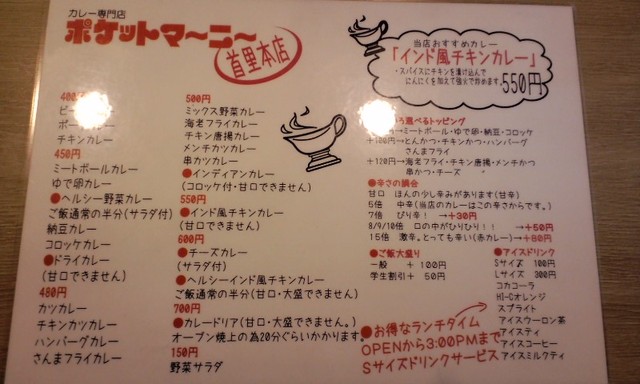 カレー専門店
ポケットマーニー
首里本店
400円
ビー
ポー
チキンカレー
450円
ミートボールカレー
ゆで卵カレー
●ヘルシー野菜カレー
ご飯通常の半分(サラダ付)
納豆カレー
コロッケカレー
●ドライカレー
(甘口できません)
480円
カツカレー
チキンカツカレー
ハンバーグカレー
さんまフライカレー
500円
ミックス野菜カレー
海老フライカレー
チキン唐揚カレー
メンチカツカレー
串カツカレー
●インディアンカレー
(コロッケ付・甘口できません)
550円
●インド風チキンカレー
(甘口できません)
600円
●チーズカレー
(サラダ付)
●ヘルシーインド風チキンカレー
ご飯通常の半分(甘口・大盛できません)
700円
●カレードリア(甘口・大盛できません。)
オーブン焼上の為20分ぐらいかかります。
150円
野菜サラダ
当店おすすめカレー
「インド風チキンカレー」
・スパイスにチキンを漬け込んで
にんにくを加えて強火で炒めます。
550円
選べるトッピング
→ミートボール・ゆで卵・納豆・コロッケ
+100円→とんかつ・チキンかつ・ハンバーグ
さんまフライ
+120円→海老フライ・チキン唐揚・メンチかつ
串かつ・チーズ
●辛さの調合
甘口 ほんの少し辛みがあります(甘辛)
5倍 中辛(当店のカレーはこの辛さからです。)
7倍 ぴり辛! →+30円
8/9/10倍 口の中がひりひり!! →+50円
15倍 激辛。とっても辛い(赤カレー)→+80円
●ご飯大盛り
一般 + 100円
学生割引+ 50円
●アイスドリンク
Sサイズ 100円
Lサイズ 300円
コカコーラ
HI-Cオレンジ
スプライト
アイスウーロン茶
アイスティ
アイスコーヒー
アイスミルクティ
●お得なランチタイム
OPENから3:00PMまで
Sサイズドリンクサービス